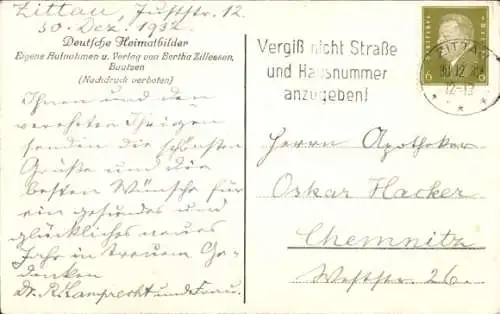 Zittau, Juststr. 12.
30. Dez. 1932
Deutsche Heimatbilder
Eigene Aufnahmen u. Verlag von Bertha Zillessen,
Bautzen
(Nachdruck verboten)
Ihnen und den
verehrten Ihrigen
senden die schönsten
Grüße und die
besten Wünsche für
ein gesundes und
glückliches neues
Jahr in treuem Ge-
denken
Dr. R. Lamprecht und Frau.
Vergiß nicht Straße
und Hausnummer
anzugeben!
ZITTAU
30.12.32
12-13
6 6
Herrn Apotheker
Oskar Hacker
Chemnitz
Weststr. 26.